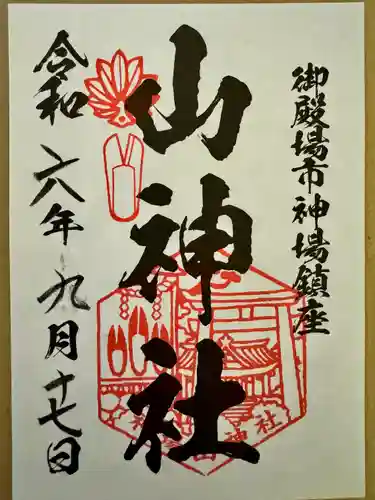 御殿場市神場鎮座
山神社
令和六年九月十七日